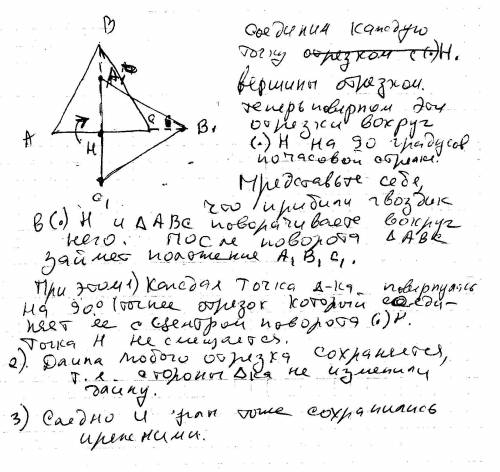 B
A
A₁
H
C
B₁
C₁
Соединим каждую
точку отрезком с (·)H.
вершины отрезком.
теперь повернем эти
отрезки вокруг
(·) H на 90 градусов
по часовой стрелке
Представьте себе,
что прибили гвоздик
в (·) H и ΔABC поворачиваете вокруг
него. После поворота ΔABC
займет положение A₁ B₁ C₁.
При этом 1) Каждая точка Δ-ка повернулась
на 90° (точнее отрезок который соеди-
няет ее с центром поворота (·) H.
Точка H не смещается.
2). Длина любого отрезка сохраняется,
т.е. стороны Δка не изменили
длину.
3) Следно и углы тоже сохранились
прежними.